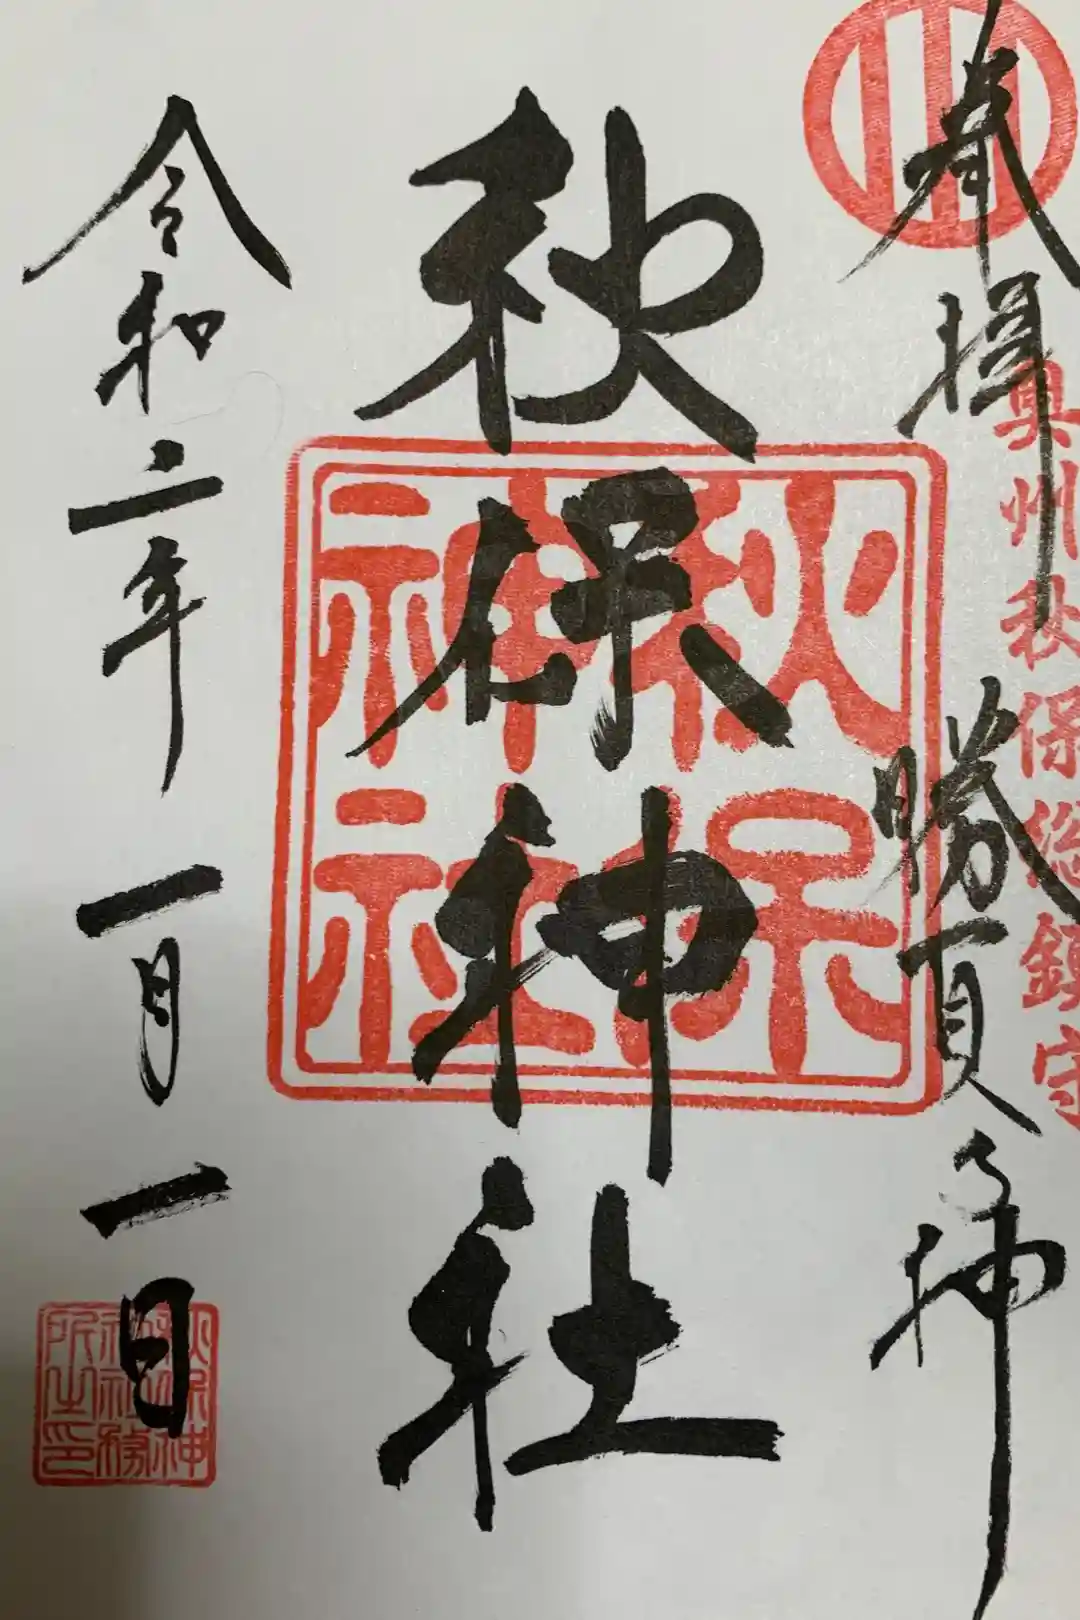 奥州秋保総鎮守
奉拝 勝負の神
秋保神社
秋保
神社
令和二年 一月一日
秋保神
社社務
所之印